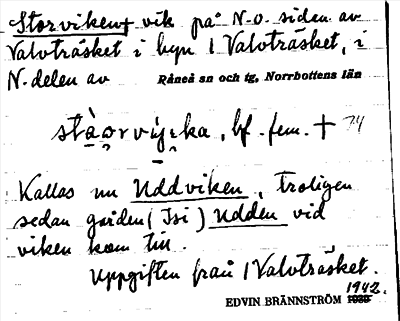 Storviken † vik på N.o. sidan av
Valvträsket i byn 1 Valvträsket, i
N. delen av Råneå sn och tg, Norrbottens län
bf. fem. † 74
Kallas nu Uddviken, troligen
sedan gården (Isi) Udden vid
viken kom till.
Uppgiften från 1 Valvträsket.
1942.
EDVIN BRÄNNSTRÖM 1939